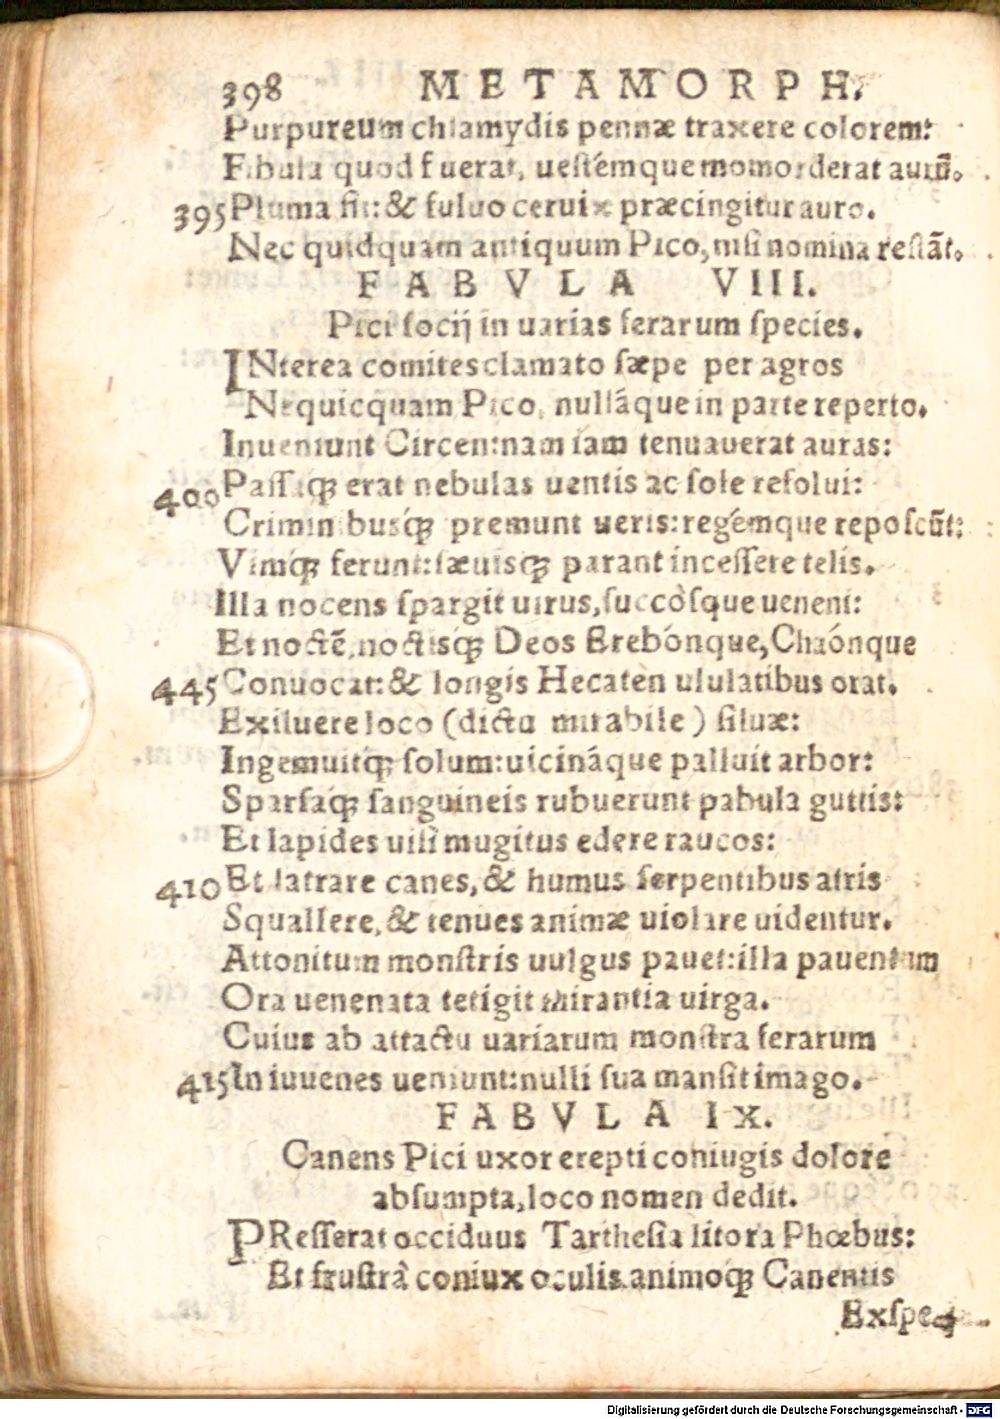 398 METAMORPH.
Purpureum chlamydis pennæ traxere colorem:
Fibula quod fuerat, uestémque momorderat aurū.
395 Pluma fit: & fuluo ceruix præcingitur auro.
Nec quidquam antiquum Pico, nisi nomina restāt.
FABVLA VIII.
Pici socij in uarias ferarum species.
INterea comites clamato sæpe per agros
Nequicquam Pico, nulláque in parte reperto,
Inueniunt Circen: nam iam tenuauerat auras:
400 Passáq; erat nebulas uentis ac sole resolui:
Criminibusq́; premunt ueris: regémque reposcūt:
Vimq́; ferunt: sæuisq́; parant incessere telis.
Illa nocens spargit uirus, succòsque ueneni:
Et noctē, noctisq́; Deos Erebónque, Chaónque
445 Conuocat: & longis Hecaten ululatibus orat.
Exiluere loco (dictu mirabile) siluæ:
Ingemuitq́; solum: uicináque palluit arbor:
Sparsáq; sanguineis rubuerunt pabula guttis:
Et lapides uisi mugitus edere raucos:
410 Et latrare canes, & humus serpentibus atris
Squallere, & tenues animæ uiolare uidentur.
Attonitum monstris uulgus pauet: illa pauentum
Ora uenenata tetigit mirantia uirga.
Cuius ab attactu uariarum monstra ferarum
415 In iuuenes ueniunt: nulli sua mansit imago.
FABVLA IX.
Canens Pici uxor erepti coniugis dolore
absumpta, loco nomen dedit.
PResserat occiduus Tarthesia litora Phœbus:
Et frustrà coniux oculis animoq́; Canentis
Exspe-
Digitalisierung gefördert durch die Deutsche Forschungsgemeinschaft - DFG